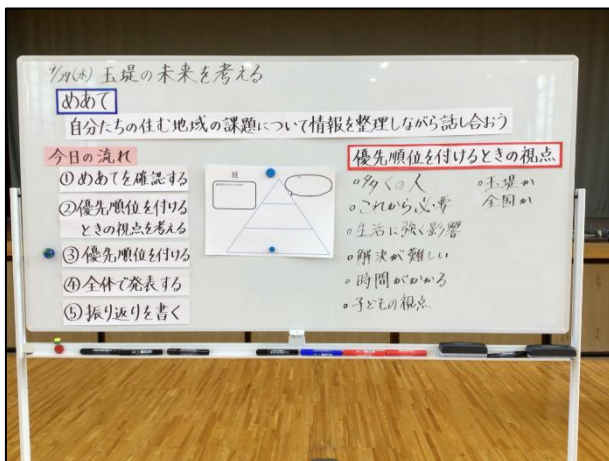 9/29(水) 玉堤の未来を考える
めあて
自分たちの住む地域の課題について情報を整理しながら話し合おう
今日の流れ
①めあてを確認する
②優先順位を付ける
ときの視点を考える
③優先順位を付ける
④全体で発表する
⑤振り返りを書く
班
優先順位を付けるときの視点
○多くの人
○これから必要
○生活に強く影響
○解決が難しい
○時間がかかる
○子どもの視点
○玉堤か
全国か